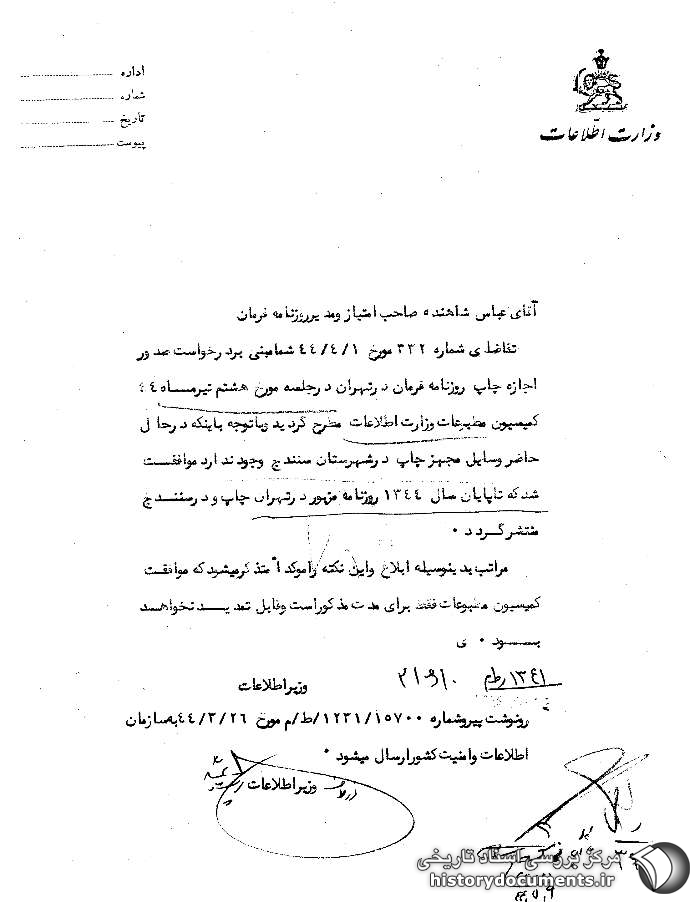 وزارت اطلاعات
اداره
شماره
تاریخ
پیوست
آقای عباس شاهنده صاحب امتیاز ومدیرروزنامه فرمان
تقاضای شماره ۳۳۲ مورخ ۴۴/۴/۱ شمامبنی بردرخواست صدور
اجازه چاپ روزنامه فرمان درتهران درجلسه مورخ هشتم تیرماه
کمیسیون مطبوعات وزارت اطلاعات مطرح گردید وباتوجه باینکه درحال
حاضر وسایل مجهز چاپ درشهرستان سنندج وجودندارد موافقت
شدکه تاپایان سال ۱۳۴۴ روزنامه مزبور درتهران چاپ ودرسنندج
منتشرگردد ۰
مراتب بدینوسیله ابلاغ واین نکته راموکداً متذکرمیشودکه موافقت
کمیسیون مطبوعات فقط برای مدت مذکوراست وقابل تمدید نخواهد
بود ۰ ی
وزیراطلاعات
رونوشت پیروشماره ۱۲۳۱/۱۵۷۰۰/ط/م مورخ ۴۴/۳/۲۶ بهسازمان
اطلاعات وامنیت کشورارسال میشود ۰
وزیراطلاعات
مرکز بررسی اسناد تاریخی
historydocuments.ir